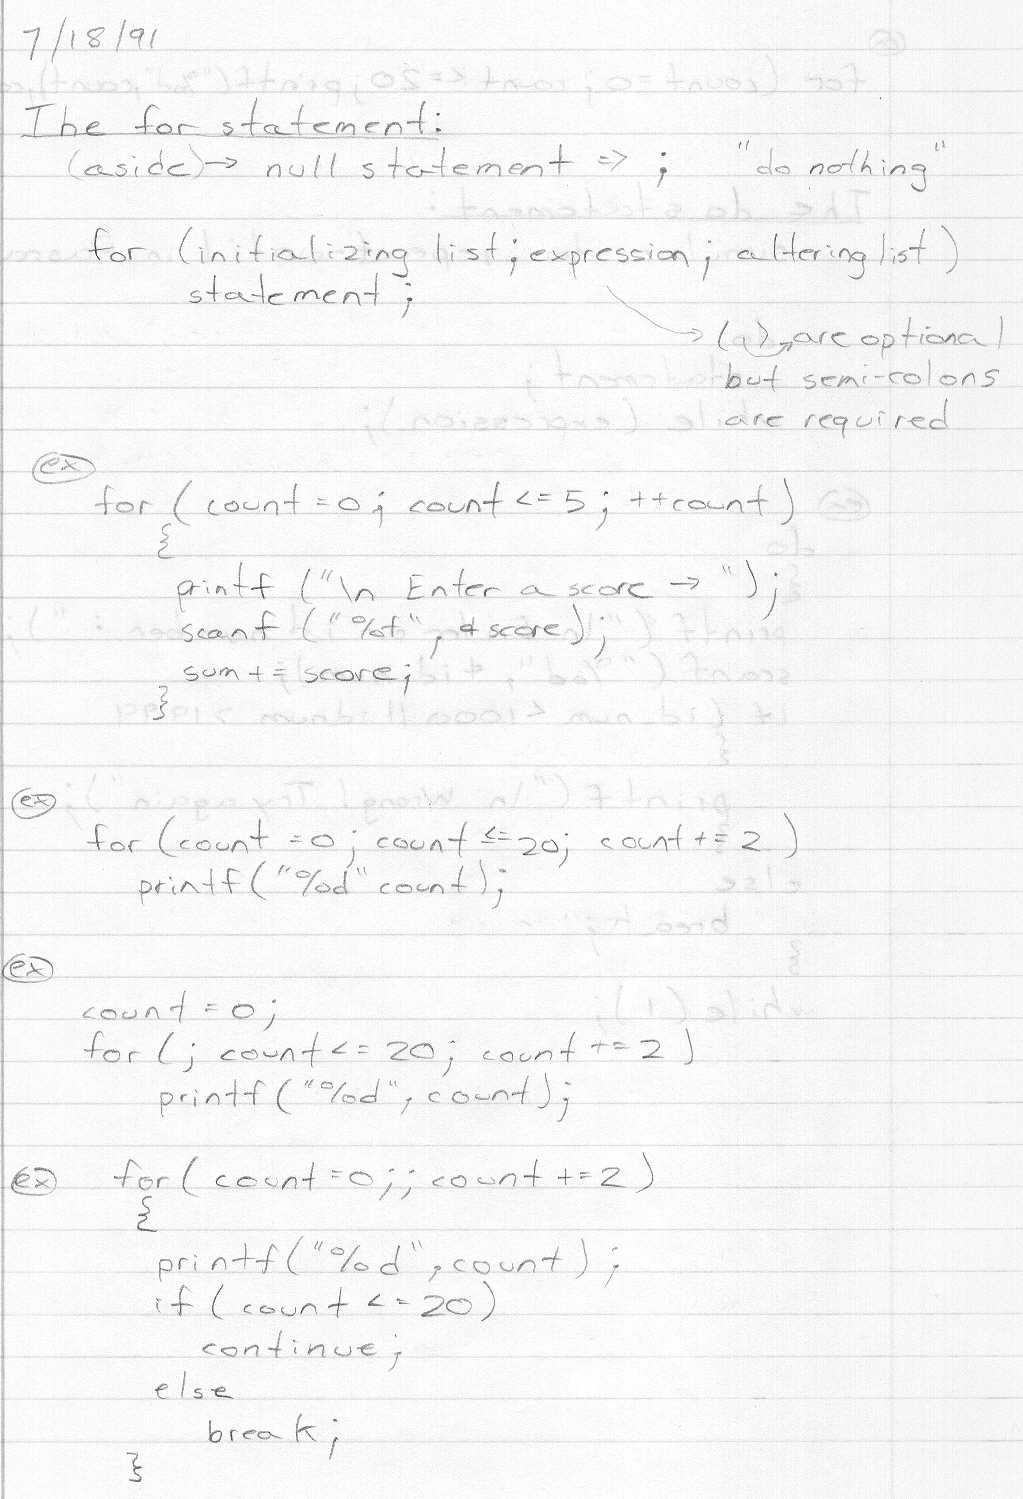 7/18/91
The for statement:
(aside) → null statement ⇒ ; "do nothing"
for (initializing list; expression; altering list)
statement;
→ ( ) are optional
but semi-colons
are required
ex
for ( count = 0; count <= 5; ++count )
{
printf ("\n Enter a score → ");
scanf ("%f", &score);
sum += score;
}
ex
for (count = 0; count <= 20; count += 2 )
printf("%d" count);
ex
count = 0;
for (; count <= 20; count += 2 )
printf("%d", count);
ex for ( count = 0;; count += 2 )
{
printf("%d", count);
if ( count <= 20)
continue;
else
break;
}